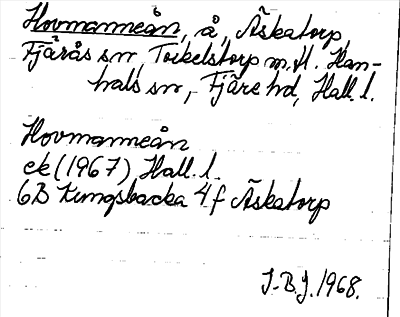 Hovmanneån, å, Äskatorp,
Fjärås sn, Torkelstorp m.fl. Han-
hals sn, Fjäre hd, Hall. l.
Hovmanneån
ek (1967) Hall. l.
6B Kungsbacka 4f Äskatorp
I-B.J. 1968.